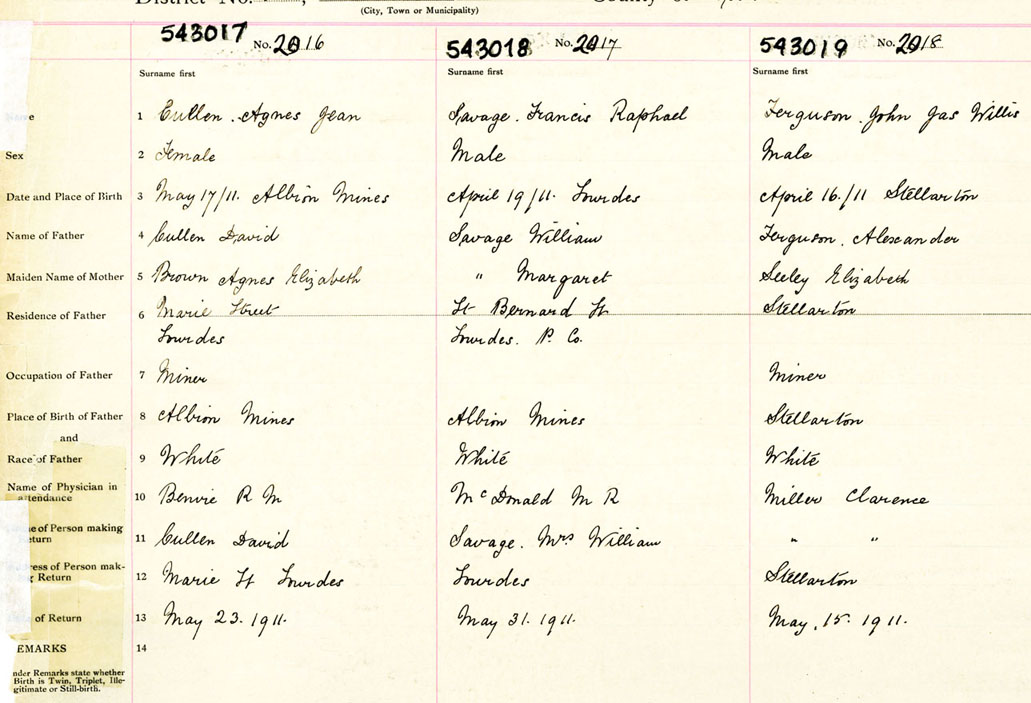 District No.
(City, Town or Municipality)
543017 No. 2016
543018 No. 2017
543019 No. 2018
Surname first
Surname first
Surname first
1 Cullen. Agnes Jean
Savage. Francis Raphael
Ferguson. John Jas Willis
Sex 2 Female
Male
Male
Date and Place of Birth 3 May 17/11. Albion Mines
April 19/11. Lourdes
April 16./11 Stellarton
Name of Father 4 Cullen David
Savage William
Ferguson. Alexander
Maiden Name of Mother 5 Brown Agnes Elizabeth
" Margaret
Seeley Elizabeth
Residence of Father 6 Marie Street
Lourdes
St Bernard St
Lourdes. P. Co.
Stellarton
Occupation of Father 7 Miner
Miner
Place of Birth of Father 8 Albion Mines
Albion Mines
Stellarton
and
Race of Father 9 White
White
White
Name of Physician in
attendance 10 Benvie R M
McDonald M R
Miller Clarence
of Person making
eturn 11 Cullen David
Savage. Mrs William
" "
ress of Person mak-
g Return 12 Marie St Lourdes
Lourdes
Stellarton
of Return 13 May 23. 1911.
May 31. 1911.
May. 15. 1911.
EMARKS 14
nder Remarks state whether
Birth is Twin, Triplet, Ille-
gitimate or Still-birth.